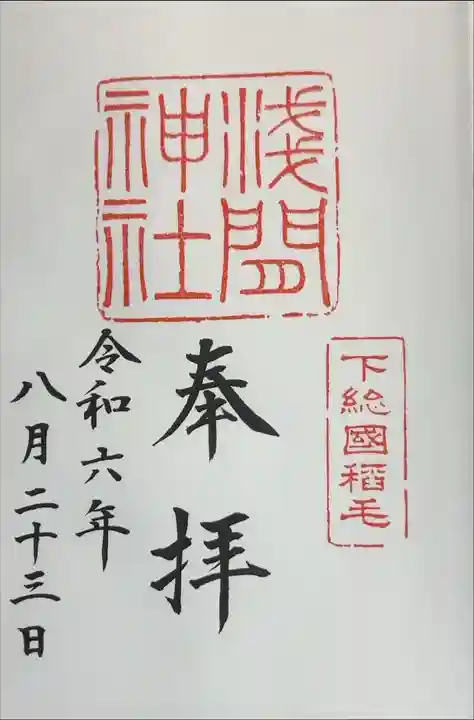 下総國稻毛
淺間
神社
奉拝
令和六年
八月二十三日